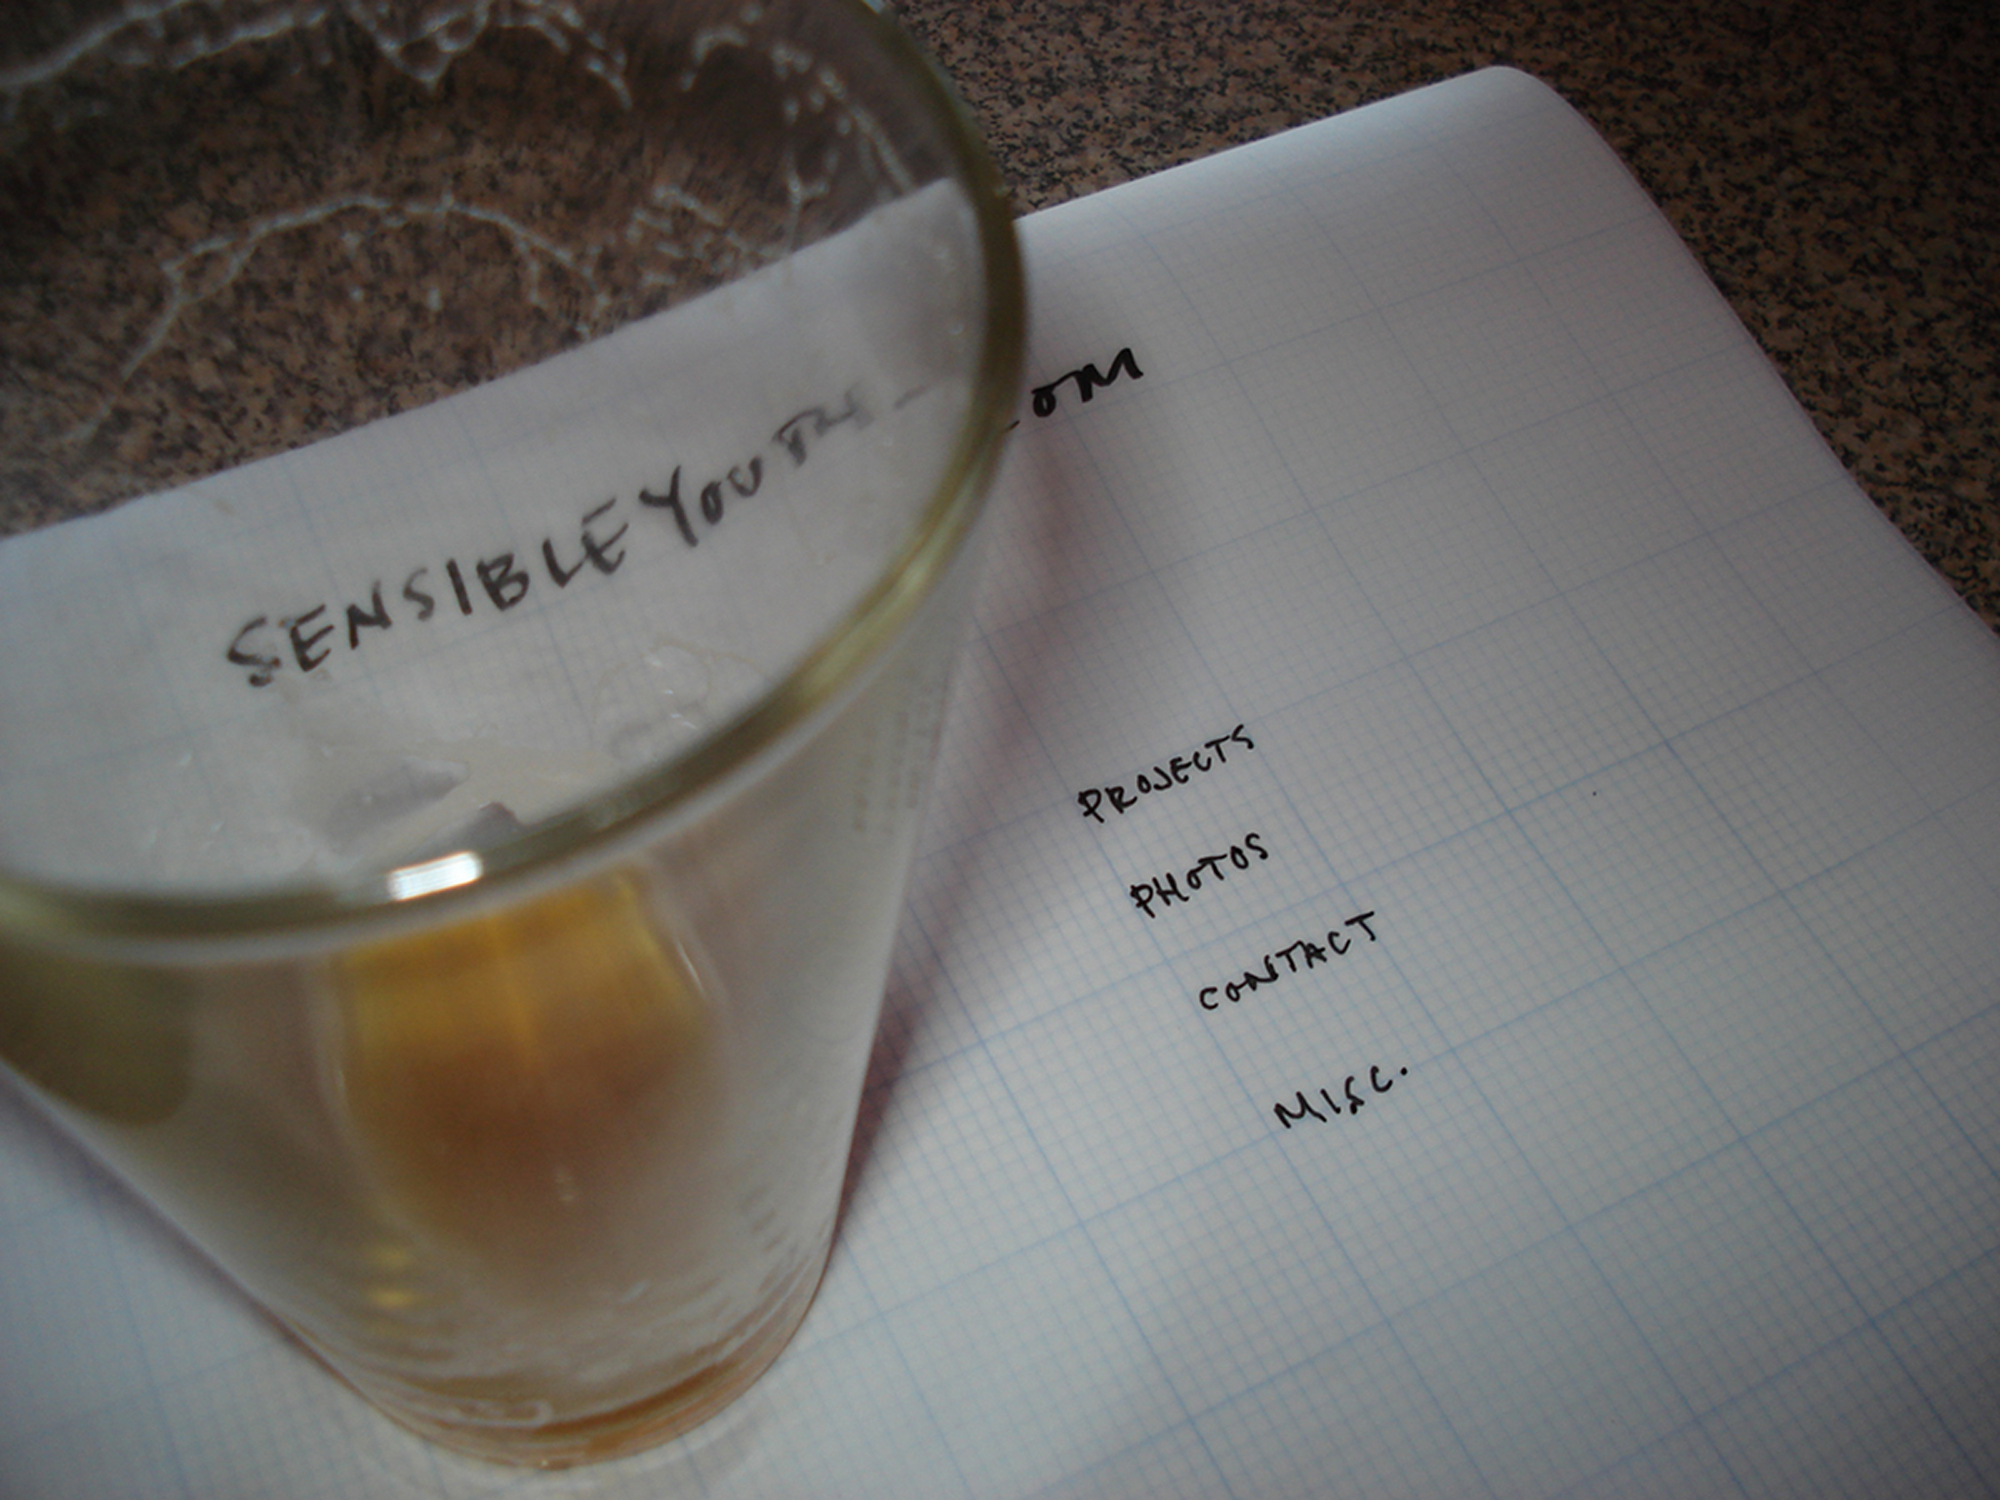 SENSIBLEYOUTH.COM
PROJECTS
PHOTOS
CONTACT
MISC.